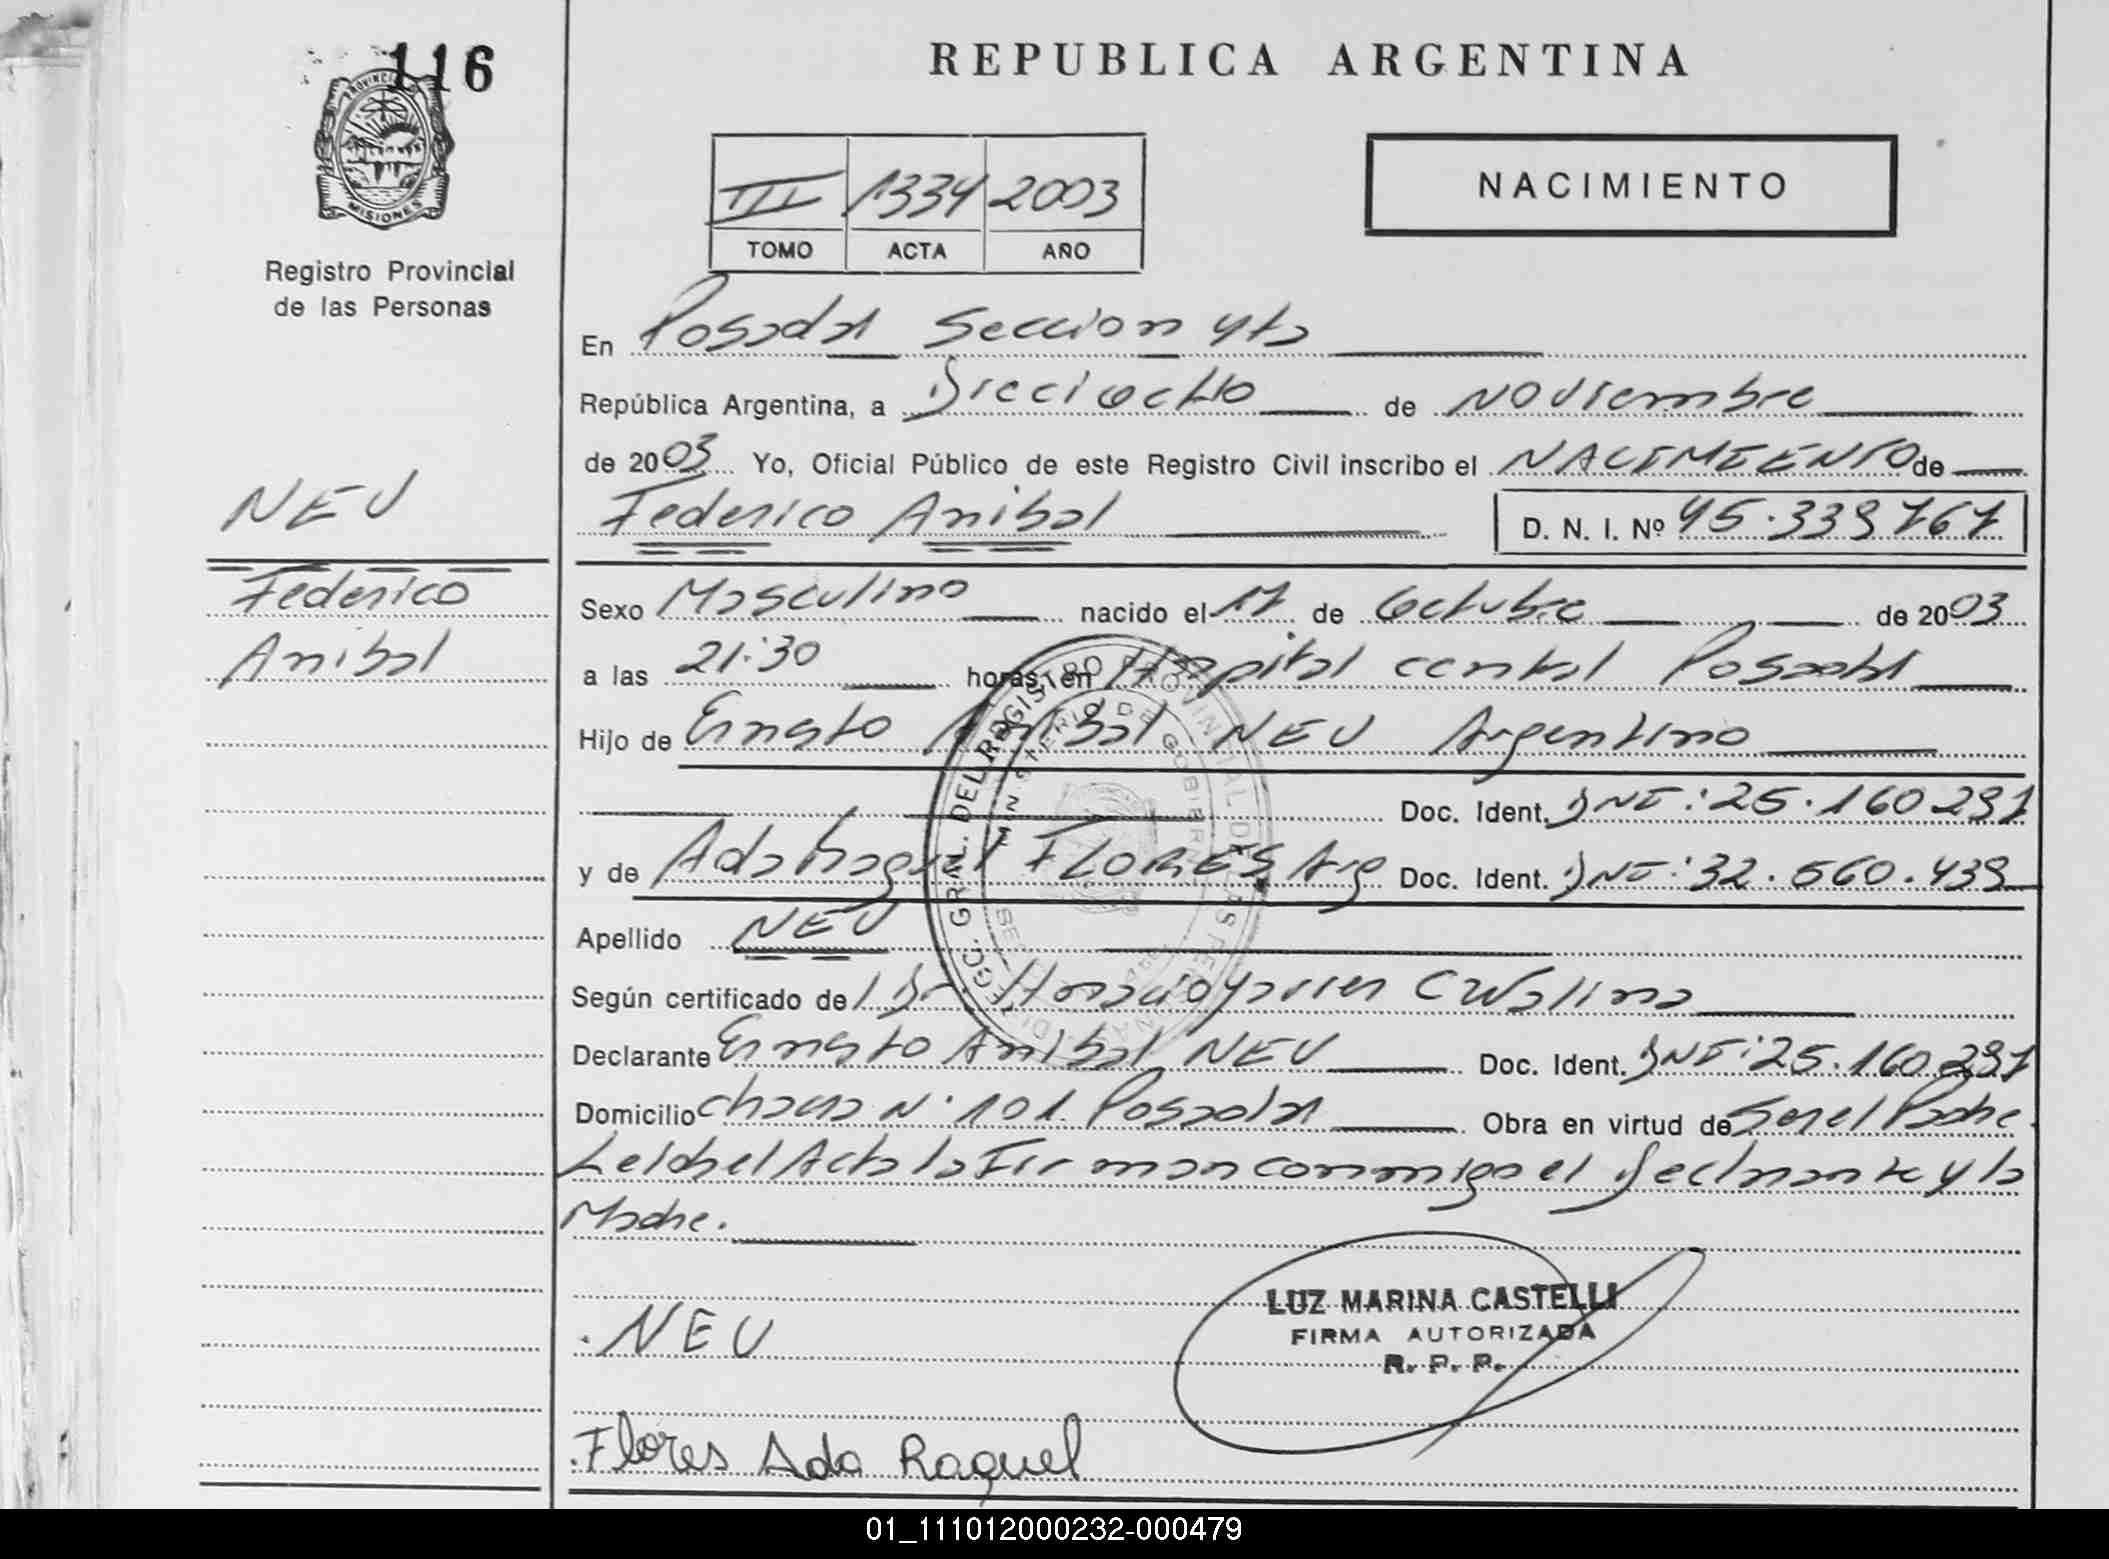 116
REPUBLICA ARGENTINA
PROVINCIA
MISIONES
Registro Provincial
de las Personas
III 1334 2003
TOMO ACTA AÑO
NACIMIENTO
En Posadas Seccion 4ta
República Argentina, a Dieciocho de Noviembre
de 2003 Yo, Oficial Público de este Registro Civil inscribo el NACIMIENTO de
NEU
Federico Anibal D. N. I. Nº 45.339767
Federico
Anibal
Sexo Masculino nacido el 17 de Octubre de 2003
a las 21:30 horas, en Hospital central Posadas
Hijo de Ernesto Anibal NEU Argentino
Doc. Ident. DNI: 25.160.291
y de Ada Raquel FLORES Arg Doc. Ident. DNI: 32.560.439
Apellido NEU
Según certificado de Dr.
Declarante Ernesto Anibal NEU Doc. Ident. DNI: 25.160.291
Domicilio chacra Nº 101 Posadas Obra en virtud de Ser el Padre.
Leida el Acta la Firman conmigo el Declarante y la
Madre.
NEU
LUZ MARINA CASTELLI
FIRMA AUTORIZADA
R. P. P.
Flores Ada Raquel
01_111012000232-000479